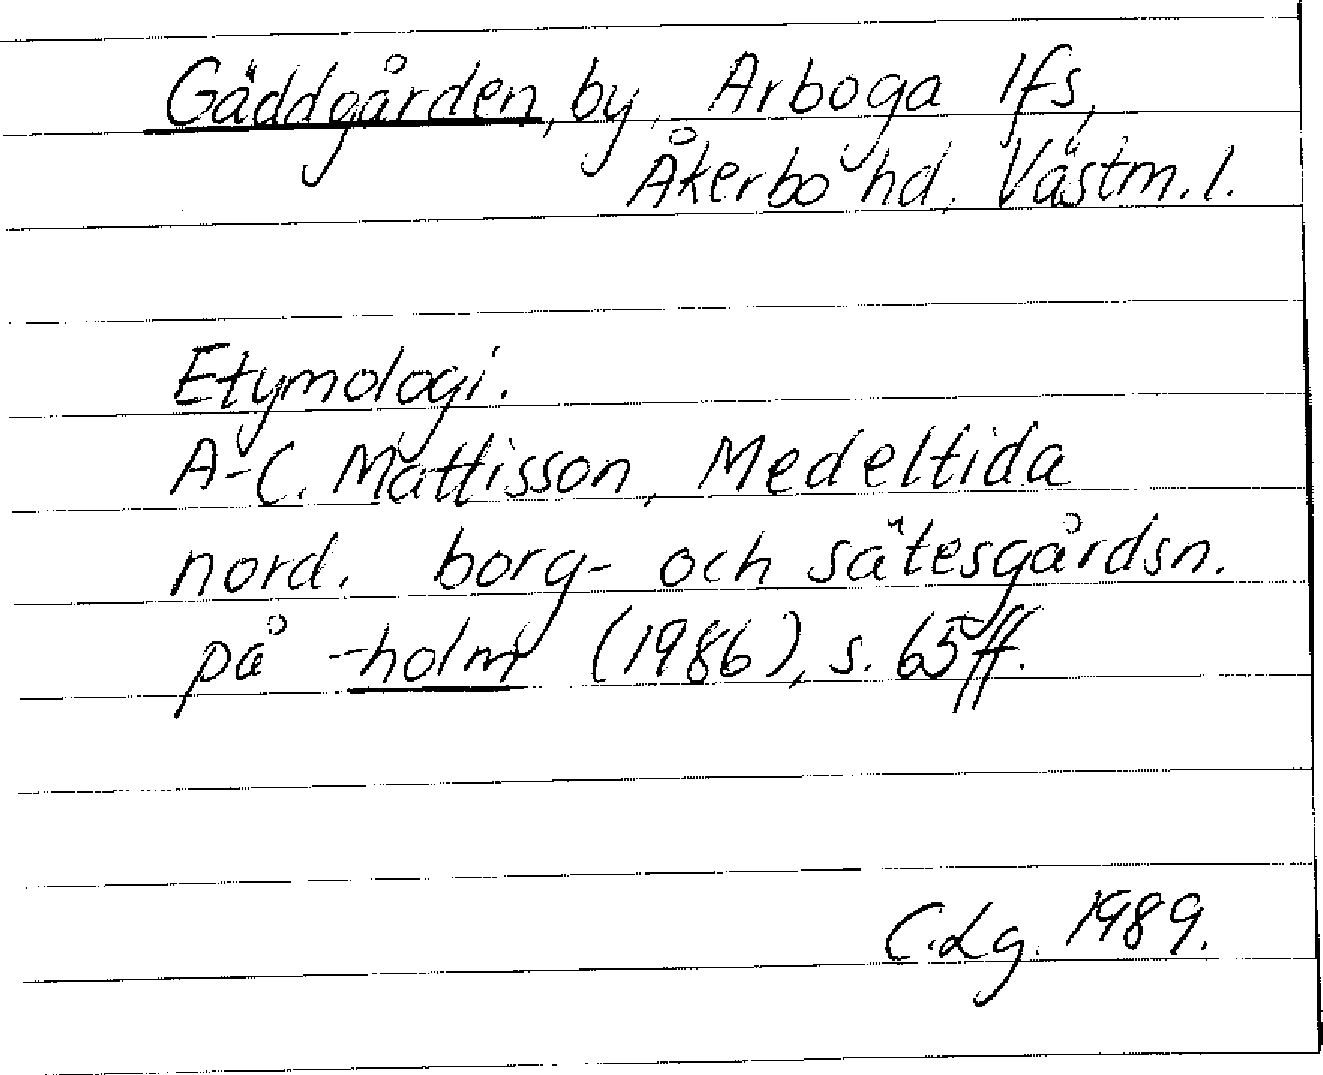 Gäddgården, by, Arboga lfs,
Åkerbo hd, Västm. l.
Etymologi.
A-C. Mattisson, Medeltida
nord. borg- och sätesgårdsn.
på -holm (1986), s. 65 ff.
C.Lg. 1989.